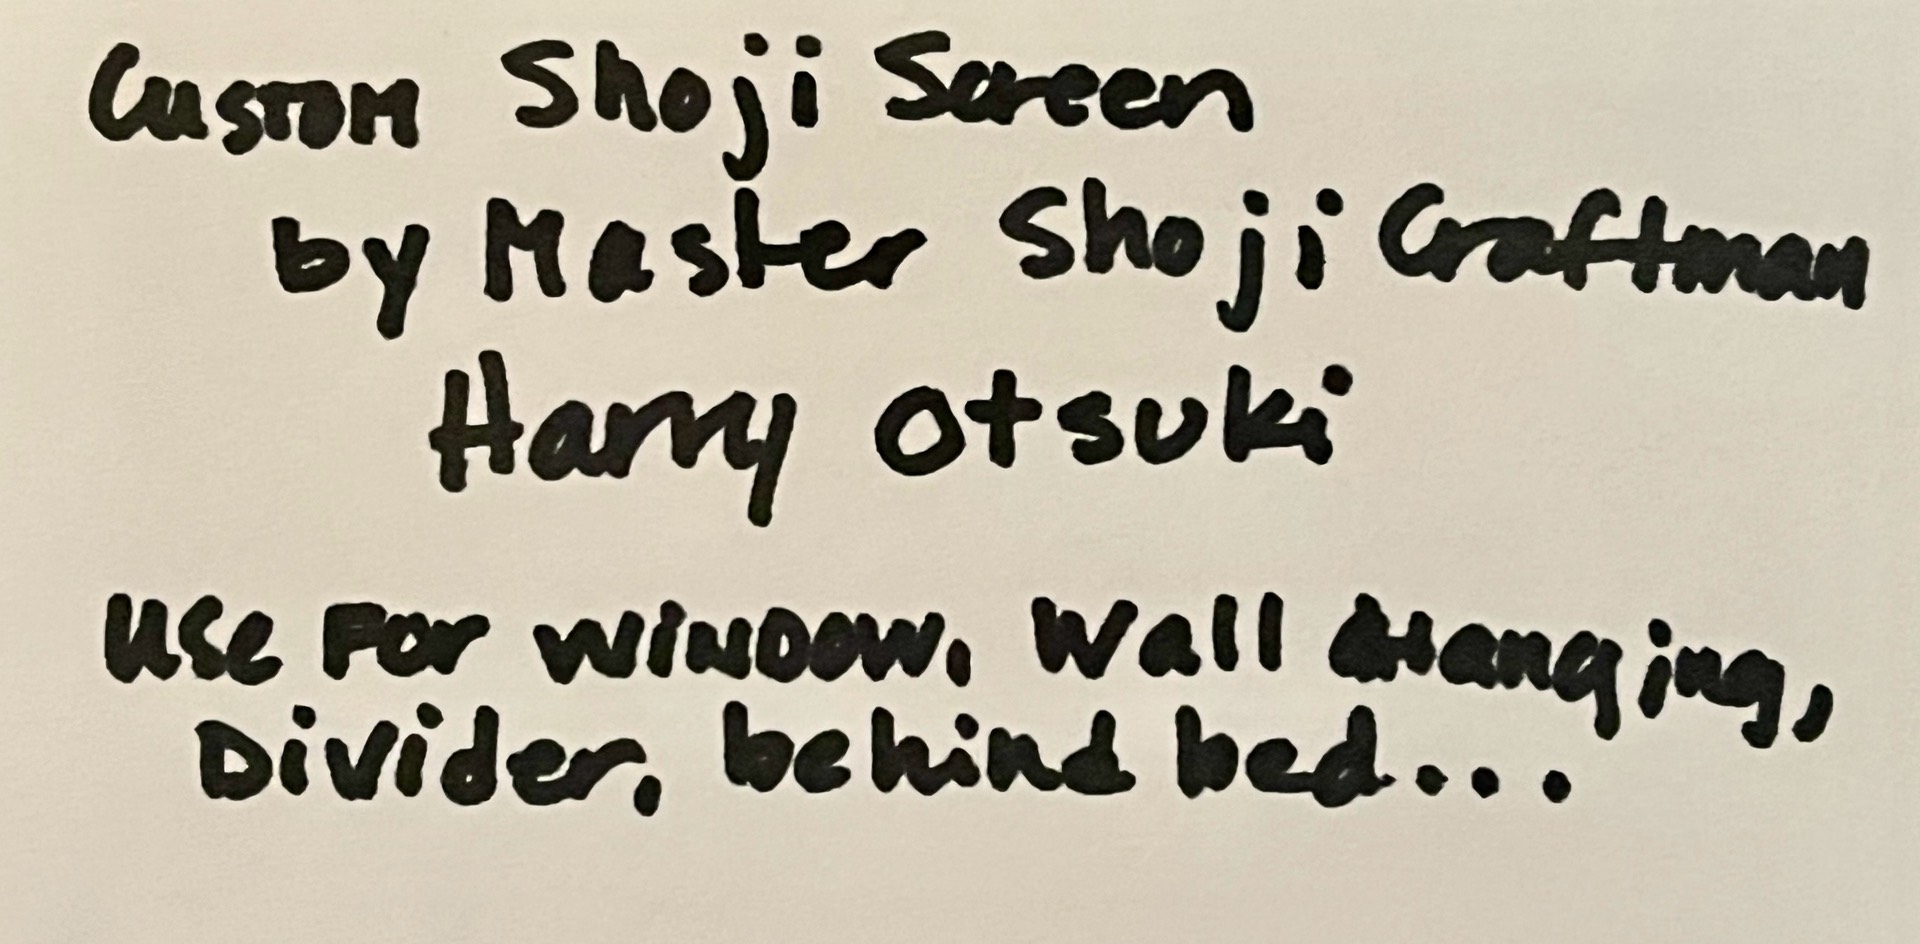 Custom Shoji Screen
by Master Shoji Craftman
Harry Otsuki
Use For Window, Wall Hanging,
Divider, behind bed...